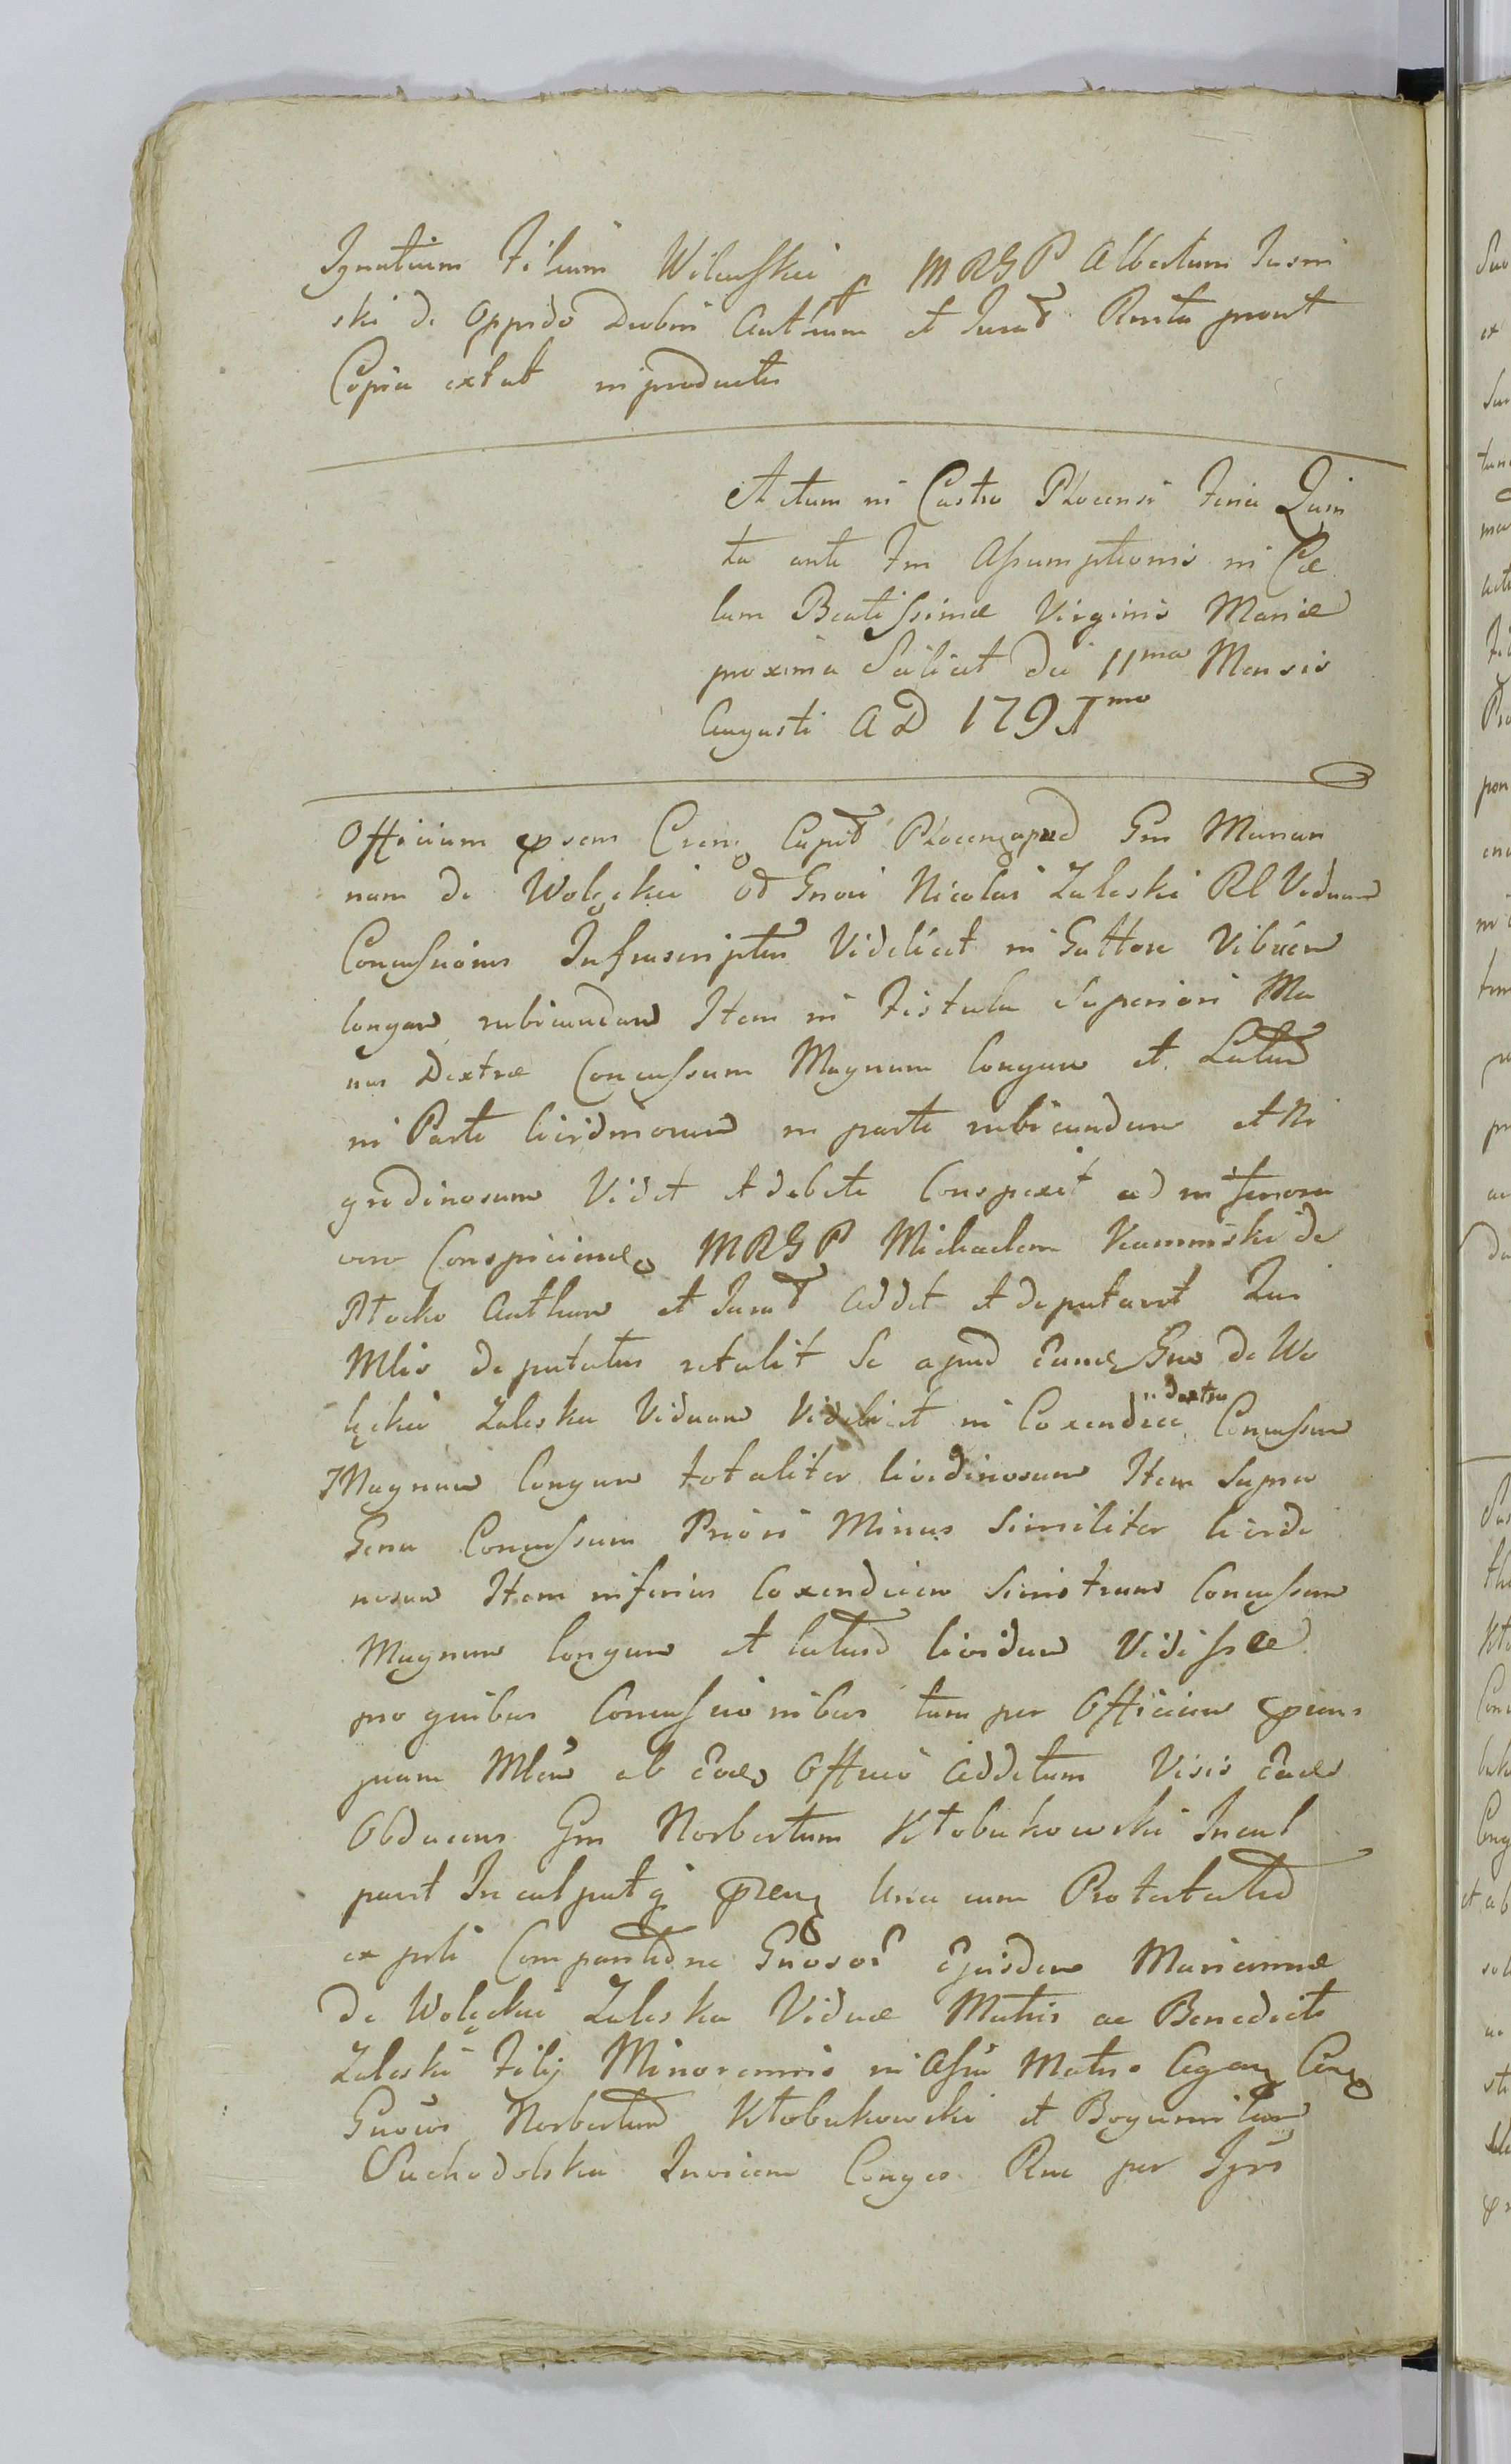 Ignatium Filium Wilewskii p MRGP Albertum Jasin
ski de Oppido Drobin Authum et Jurat Rnta prout
Copia extat in productis
Actum in Castro Plocensi Feria Quin
ta ante Fm Assumptionis in Cæ
lum Beatissimæ Virginis Mariæ
proxima Scilicet die 11ma Mensis
Augusti AD 1791mo
Officium pnsens Cren Capit Plocen apud Gm Marian
nam de Wolęckie od Gnoii Nicolai Zaleski Rl Viduam
Concussiones Infrascriptas Videlicet in Guttore Vibicem
longam rubicundam Item in Fistula Superiori Ma
nus Dextræ Concussum Magnum longum et Latum
in Parte lividinosum in parte rubicundum et ni
gredinosum Vidit et debite Conspexit ad inferiora
vero Conspiciendæ MRGP Michaelem Kaminski de
Płocko Authum et Jurat addit et deputavit Qui
Mlis deputatus retulit Se apud eande Gnos de Wo
lęckie Zaleska Viduam Videlicet in Coxendice dextra Concussum
Magnum longum totaliter lividinosum Item Supra
Genu Concussum Priori Minus Similiter livide
nosum Item inferius Coxendicem Sinistram Concussum
Magnum longum et latum lividum Vidisse
pro quibus Concussionibus tum per Officium pnsens
quam Mlem ab eode Officio additum Visis eade
Obducens Gm Norbertum Kłobukowski Incul
pavit Inculpatq pren una cum Protestatne
ex prti Comparitione Gnosor ejusdem Mariannæ
de Wolęckie Zaleska Viduæ Matris ac Benedicti
Zaleski Filij Minorennis in Assia Matris Agen Cong
Gnosos Norbertum Kłobukowski et Bogumilam
Suchodolska Invicem Conges Rne per Ipsos